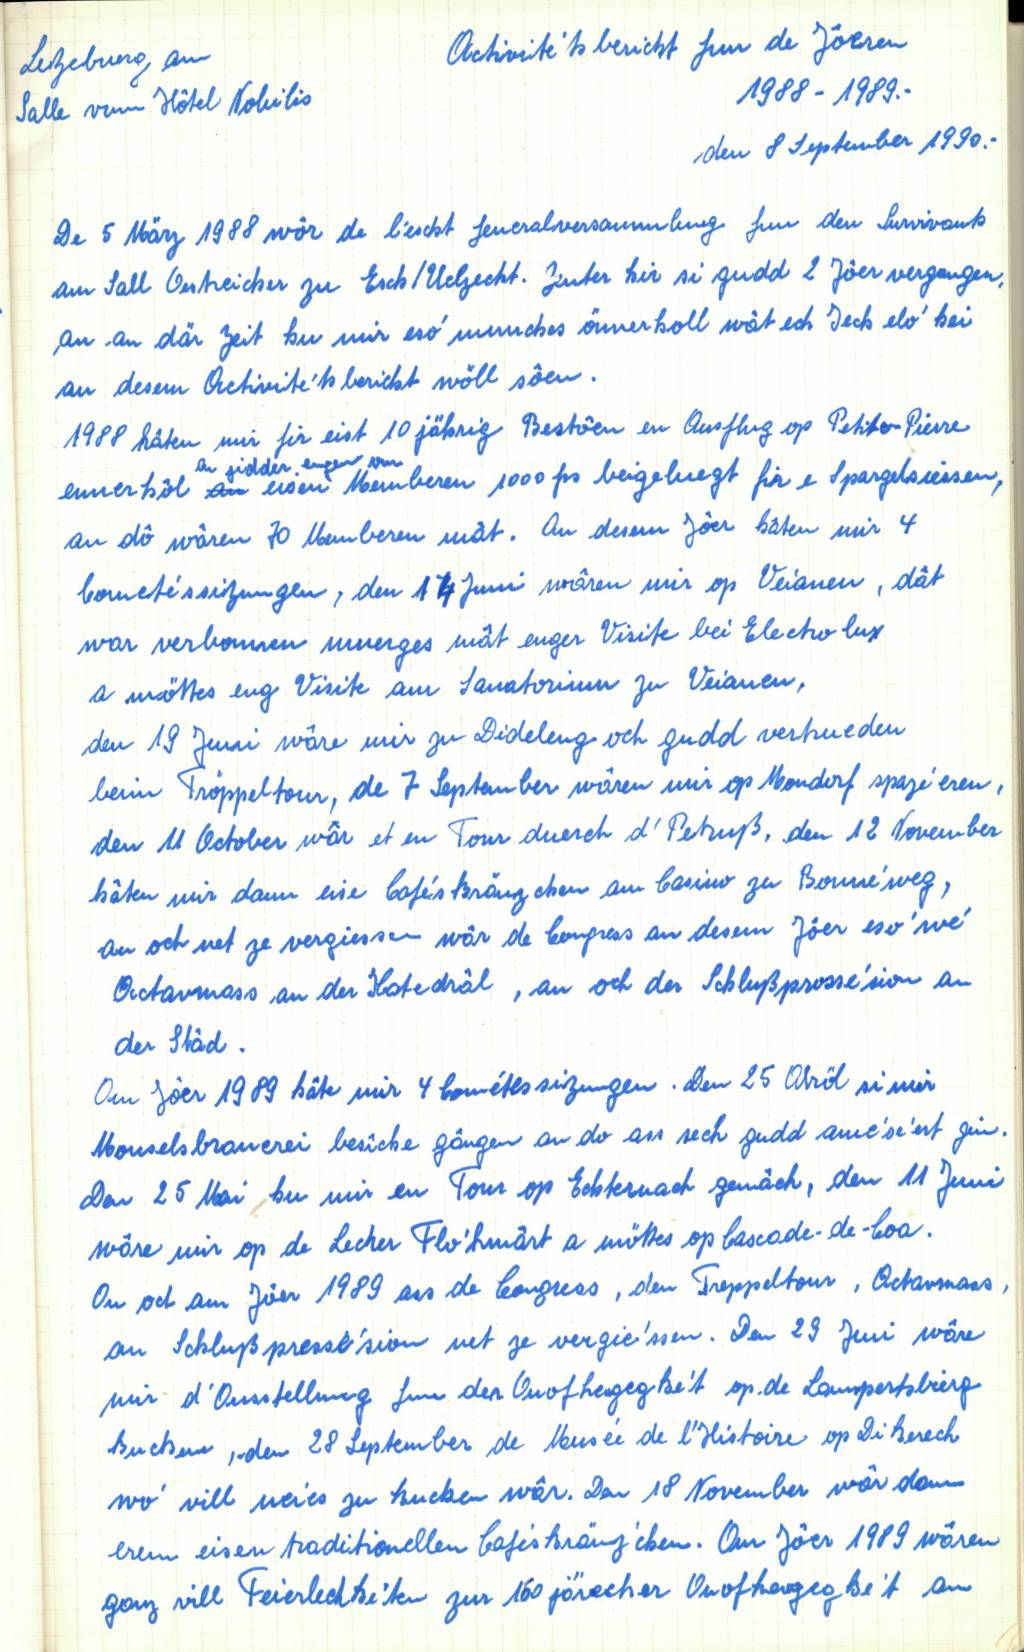 Letzebuerg am
Salle vum Hôtel Nobilis
Activité'tsbericht fun de Jôeren
1988-1989.-
den 8 September 1990.-
De 5 März 1988 wôr de lescht Generalversammlung fun den Survivants
am Sall Oestreicher zu Esch/Uelzecht. Zinter hir si gudd 2 Jôer vergangen,
an an där Zeit hu mir esó munches önnerholl wât ech Iech eló hei
an desem Activité'tsbericht wöll sôen.
1988 hâten mir fir eist 10 jährig Bestôen en Ausflug op Petite-Pierre
ennerhôl an jidder engem vun eisen Memberen 1000 frs beigeluegt fir e Spargelsiessen,
an dô wâren 70 Memberen mât. An desem Jôer hâten mir 4
Cometéssitzungen, den 14 Juni wâren mir op Veianen, dât
war verbonnen muerges mât enger Visite bei Electrolux
a möttes eng Visite am Sanatorium zu Veianen,
den 19 Juni wâre mir zu Dideleng och gudd vertrueden
beim Tröppeltour, de 7 September wâren mir op Mondorf spazéieren,
den 11 October wâr et en Tour duerch d'Petruß, den 12 November
hâten mir dann eise Caféskränzchen am Casino zu Bonnéweg,
an och net ze vergiessen wôr de Congress an desem Jôer esó wé
Octavmass an der Katedrâl, an och der Schlußprossé'sion an
der Stâd.
Am Jôer 1989 hâte mir 4 Cométéssitzungen. Den 25 Abröl si mir
Mouselsbrauerei besîche gângen an do ass sech gudd amé'sé'ert gin.
Den 25 Mai hu mir en Tour op Echternach gemâch, den 11 Juni
wâre mir op de Lecher Flo'hmârt a möttes op Cascade-de-Coa.
An och am Jôer 1989 ass de Congress, den Treppeltour, Octavmass,
an Schlußpressé'sion net ze vergié'ssen. Den 29 Juni wâre
mir d'Ausstellung fun der Onofhengegké't op de Lampertsbierg
kucken, den 28 September de Musée de l'Histoire op Dikerech
wó vill neies zu kucken wâr. Den 18 November wôr dann
erem eisen traditionellen Caféskränz'chen. Am Jôer 1989 wâren
ganz vill Feierlechké'ten zur 150 järecher Onofhengegké't an